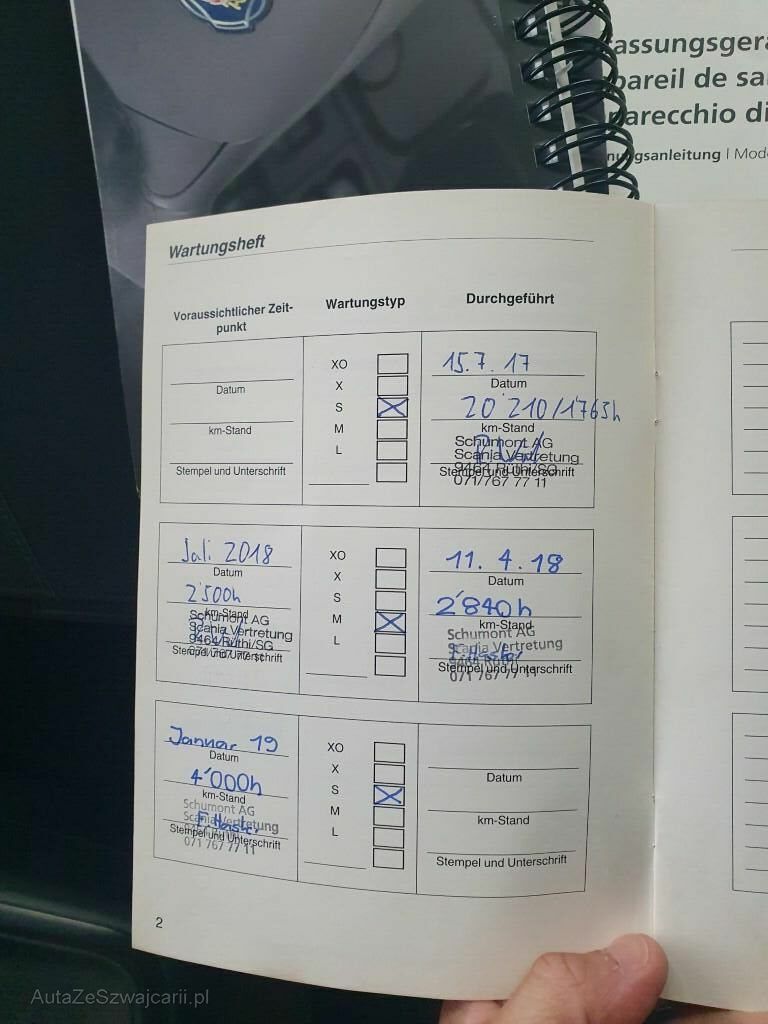 assungsgerä
pareil de sa
parecchio di
nungsanleitung | Mode
Wartungsheft
Voraussichtlicher Zeit-
punkt
Wartungstyp
Durchgeführt
XO
X
S
M
L
Datum
km-Stand
Stempel und Unterschrift
15.7.17
Datum
20'210/1763h
km-Stand
Schumont AG
Scania Vertretung
9464 Rüthi/SG
Stempel und Unterschrift
071/767 77 11
Juli 2018
Datum
2'500h
km-Stand
Schumont AG
Scania Vertretung
9464 Rüthi/SG
Stempel und Unterschrift
071/767 77 11
XO
X
S
M
L
11.4.18
Datum
2'840h
km-Stand
Schumont AG
Scania Vertretung
9464 Rüthi
Stempel und Unterschrift
071 767 77 11
Januar 19
Datum
4'000h
km-Stand
Schumont AG
Scania Vertretung
Stempel und Unterschrift
071 767 77 11
XO
X
S
M
L
Datum
km-Stand
Stempel und Unterschrift
2
AutaZeSzwajcarii.pl